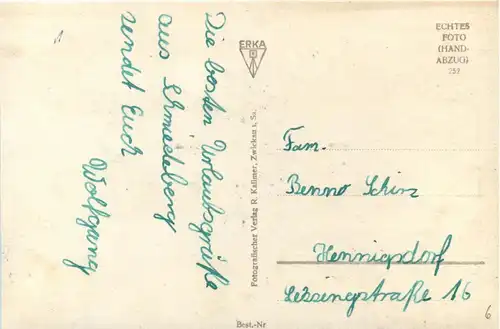 Die besten Urlaubsgrüße
aus Schmiedeberg
sendet Euch
Wolfgang
ERKA
Fotografischer Verlag R. Kallmer, Zwickau i. Sa.
Best.-Nr
ECHTES
FOTO
(HAND-
ABZUG)
Fam.
Benno Schinz
Hennigsdorf
Lessingstraße 16
6